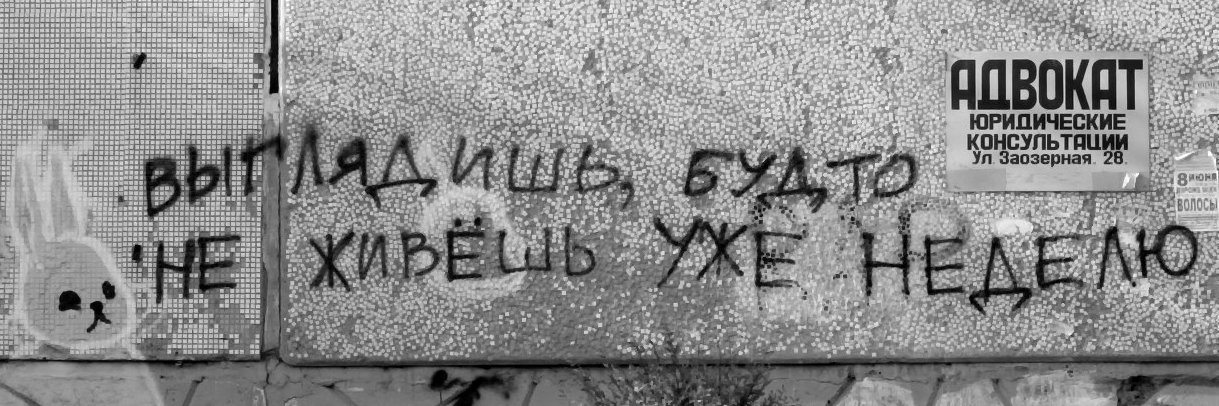 ВЫГЛЯДИШЬ, БУДТО
НЕ ЖИВЁШЬ УЖЕ НЕДЕЛЮ
АДВОКАТ
ЮРИДИЧЕСКИЕ
КОНСУЛЬТАЦИИ
Ул Заозерная. 28.
8 ИЮНЯ
ВОЛОСЫ